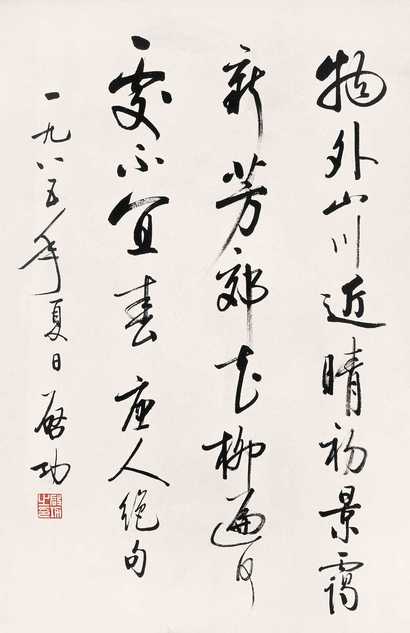 物外山川近晴初景靄
新芳郊花柳遍何
處不宜春唐人絕句
一九八五年夏日啓功